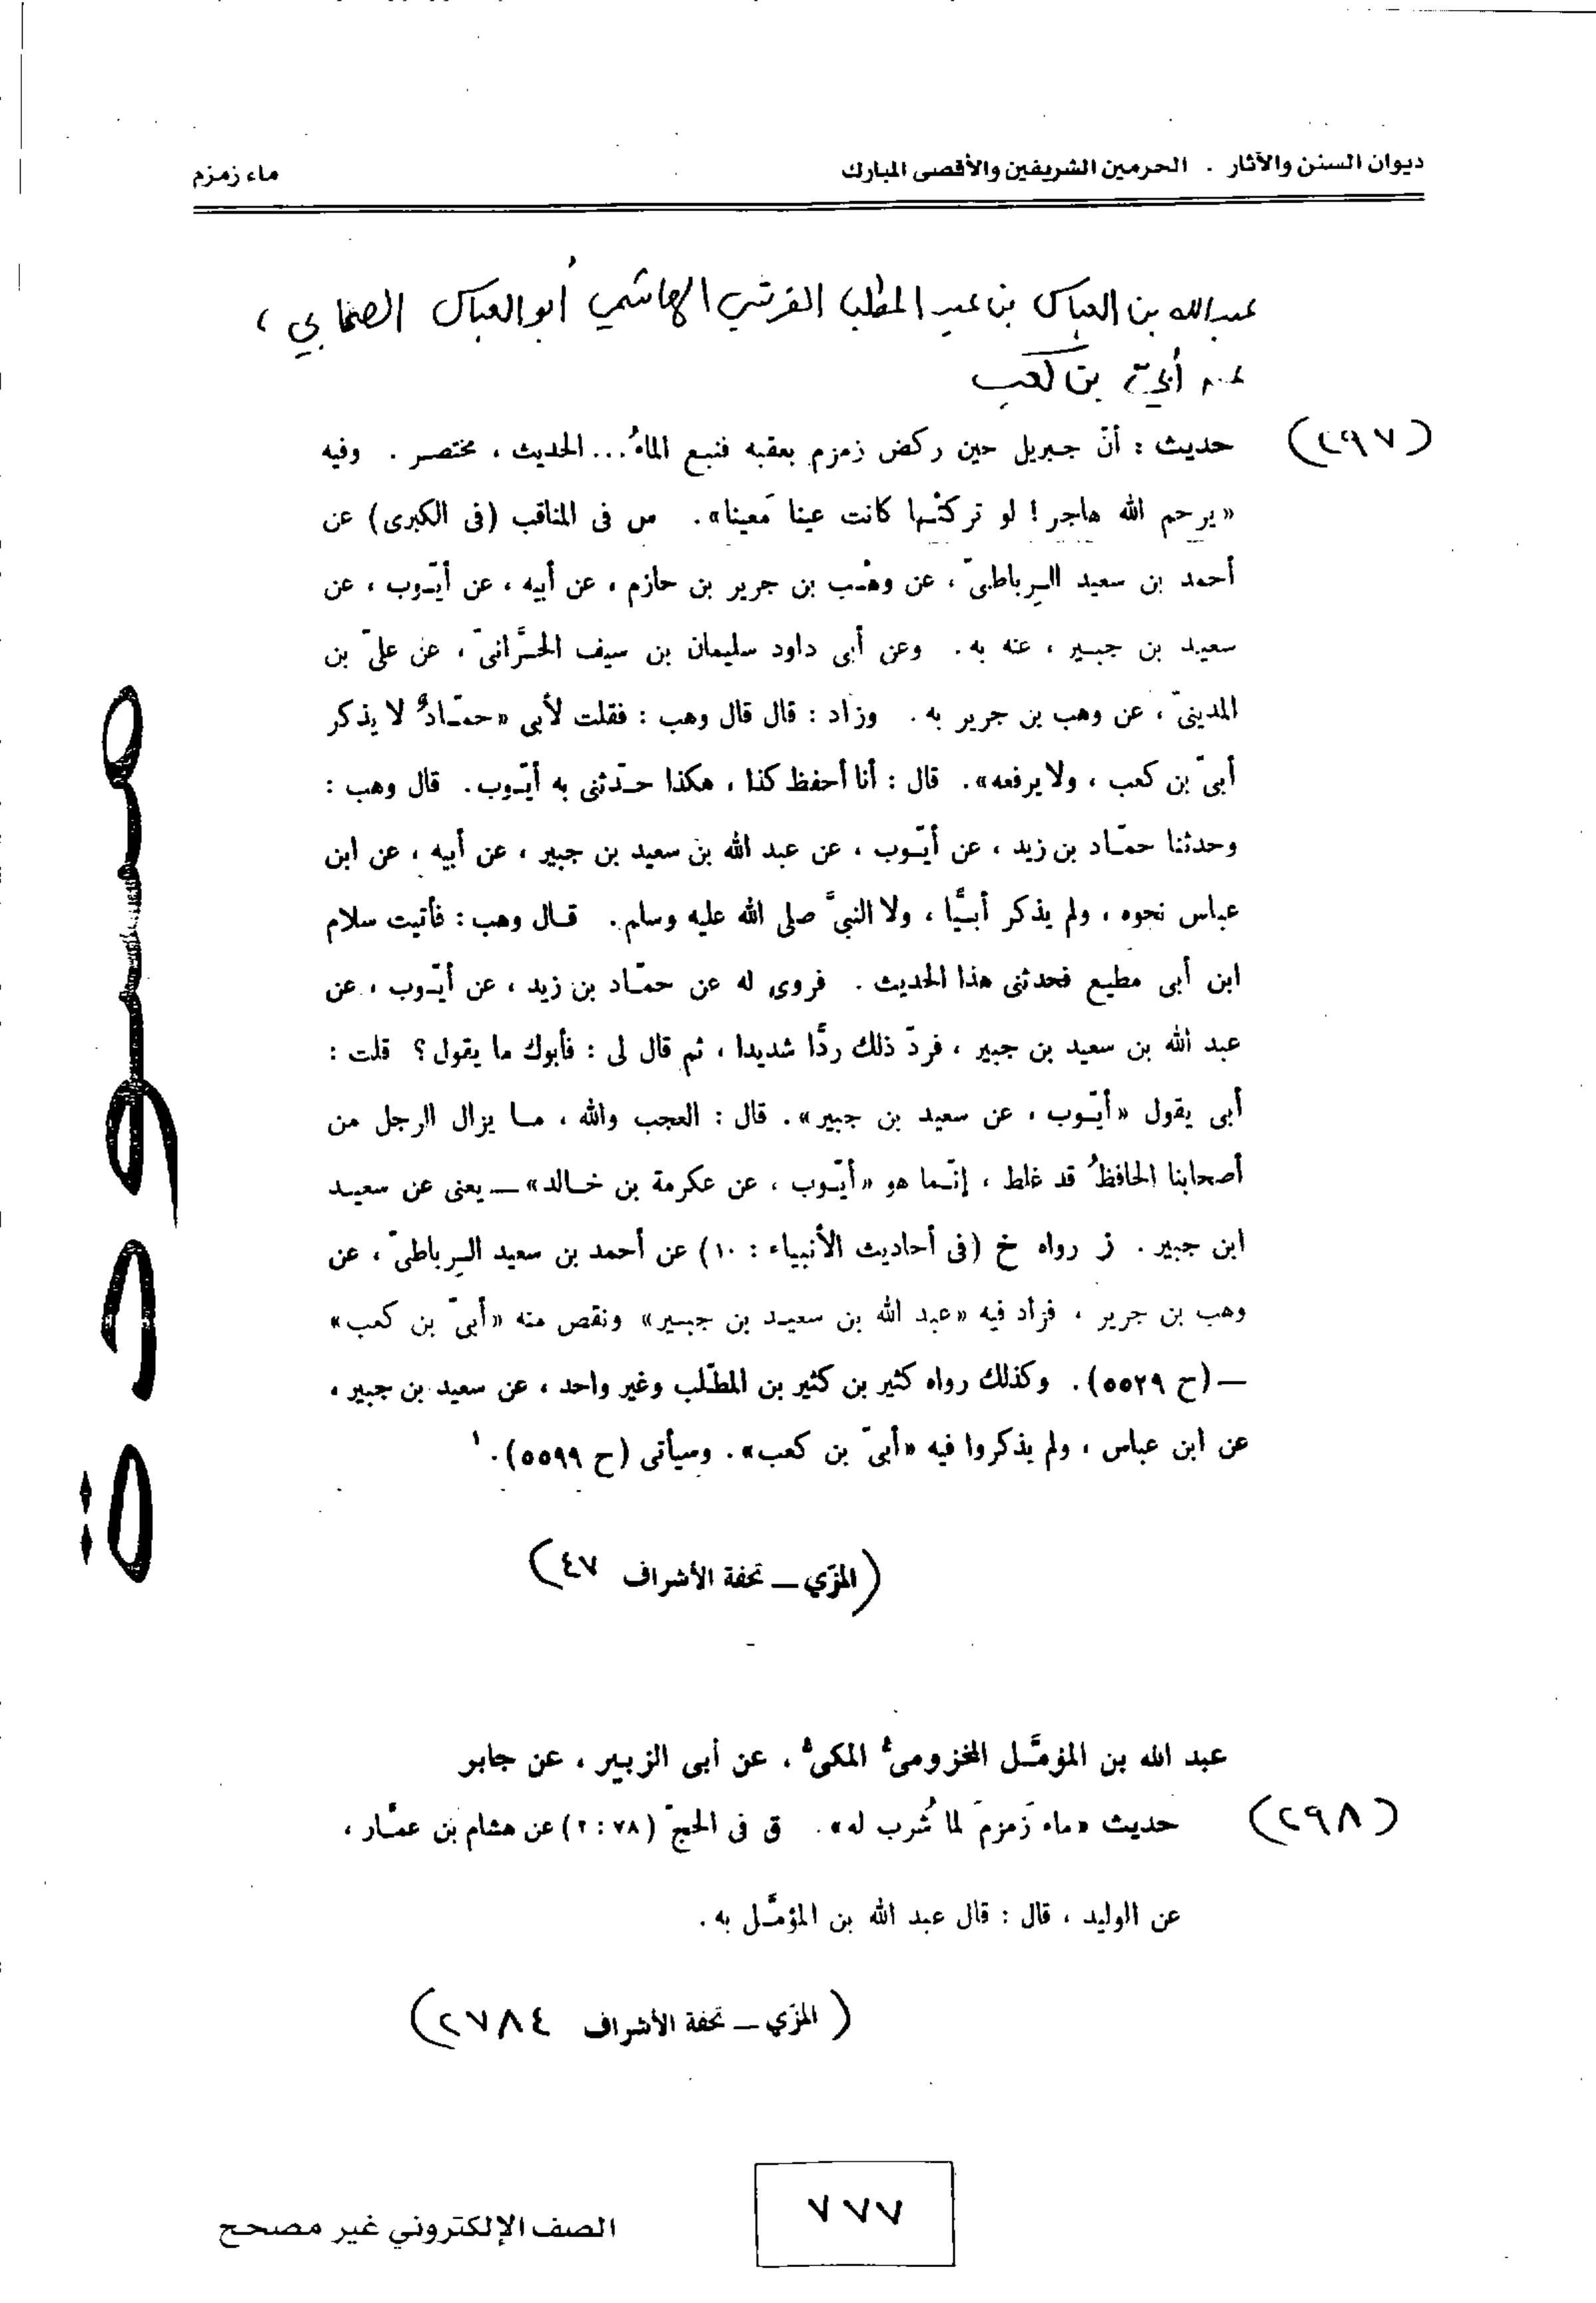 ديوان السنن والآثار . الحرمين الشريفين والأقصى المبارك
ماء زمزم
عبدالله بن العباس بن عبد المطلب القرشي الهاشمي أبو العباس الصحابي ،
عن أبيّ بن كعب
(٢٩٧) حديث : أنّ جبريل حين ركض زمزم بعقبه فنبع الماءُ... الحديث ، مختصر . وفيه
«يرحم الله هاجر ! لو تركتْها كانت عينا مَعينا». س فى المناقب (فى الكبرى) عن
أحمد بن سعيد الرباطىّ ، عن وهْب بن جرير بن حازم ، عن أبيه ، عن أيّوب ، عن
سعيد بن جبير ، عنه به . وعن أبى داود سليمان بن سيف الحَرَّانىّ ، عن علىّ بن
المدينىّ ، عن وهب بن جرير به . وزاد : قال قال وهب : فقلت لأبى «حمّادٌ لا يذكر
أبىّ بن كعب ، ولا يرفعه». قال : أنا أحفظ كذا ، هكذا حدّثنى به أيّوب . قال وهب :
وحدثنا حمّاد بن زيد ، عن أيّوب ، عن عبد الله بن سعيد بن جبير ، عن أبيه ، عن ابن
عباس نحوه ، ولم يذكر أبيًّا ، ولا النبىَّ صلى الله عليه وسلم . قال وهب : فأتيت سلام
ابن أبى مطيع فحدثنى هذا الحديث . فروى له عن حمّاد بن زيد ، عن أيّوب ، عن
عبد الله بن سعيد بن جبير ، فردّ ذلك ردًّا شديدا ، ثم قال لى : فأبوك ما يقول؟ قلت :
أبى يقول «أيّوب ، عن سعيد بن جبير». قال : العجب والله ، ما يزال الرجل من
أصحابنا الحافظُ قد غلط ، إنّما هو «أيّوب ، عن عكرمة بن خالد» – يعنى عن سعيد
ابن جبير . ز رواه خ (فى أحاديث الأنبياء : ١٠) عن أحمد بن سعيد الرباطىّ ، عن
وهب بن جرير ، فزاد فيه «عبد الله بن سعيد بن جبير» ونقص منه «أبىّ بن كعب»
– (ح ٥٥٢٩). وكذلك رواه كثير بن كثير بن المطّلب وغير واحد ، عن سعيد بن جبير ،
عن ابن عباس ، ولم يذكروا فيه «أبىّ بن كعب». وسيأتى (ح ٥٥٩٩).١
(المزّي – تحفة الأشراف ٤٧)
عبد الله بن المؤمَّل المخزومىُّ المكىُّ ، عن أبى الزبير ، عن جابر
(٢٩٨) حديث «ماء زَمزمَ لما شُرب له». ق فى الحجّ (٧٨ : ٢) عن هشام بن عمَّار ،
عن الوليد ، قال : قال عبد الله بن المؤمَّل به .
(المزّي – تحفة الأشراف ٢٧٨٤)
٧٧٧
الصف الإلكتروني غير مصحح
مسودة